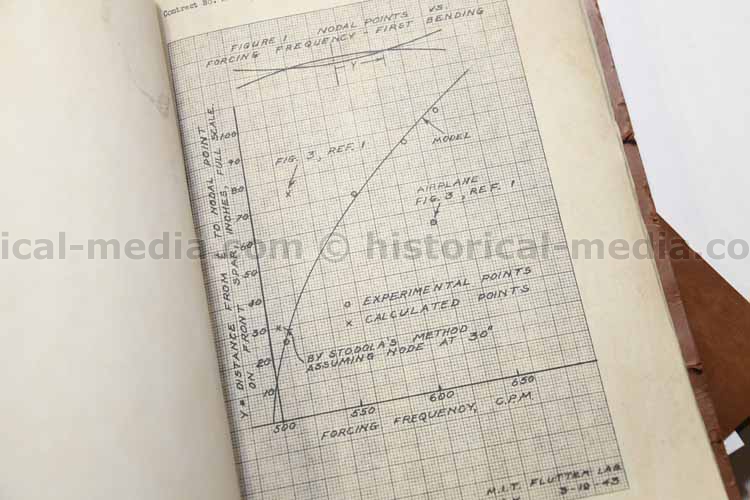 Contract No.
FIGURE 1 NODAL POINTS VS.
FORCING FREQUENCY - FIRST BENDING
Y
100
90
80
70
60
50
40
30
20
10
Y = DISTANCE FROM ℄ TO NODAL POINT
ON FRONT SPAR, INCHES, FULL SCALE.
FIG. 3, REF. 1
MODEL
AIRPLANE
FIG. 3, REF. 1
o EXPERIMENTAL POINTS
x CALCULATED POINTS
BY STODOLA'S METHOD
ASSUMING NODE AT 30"
500 550 600 650
FORCING FREQUENCY, C.P.M.
M.I.T. FLUTTER LAB
3-18-43
ical-media.com © historical-media.co